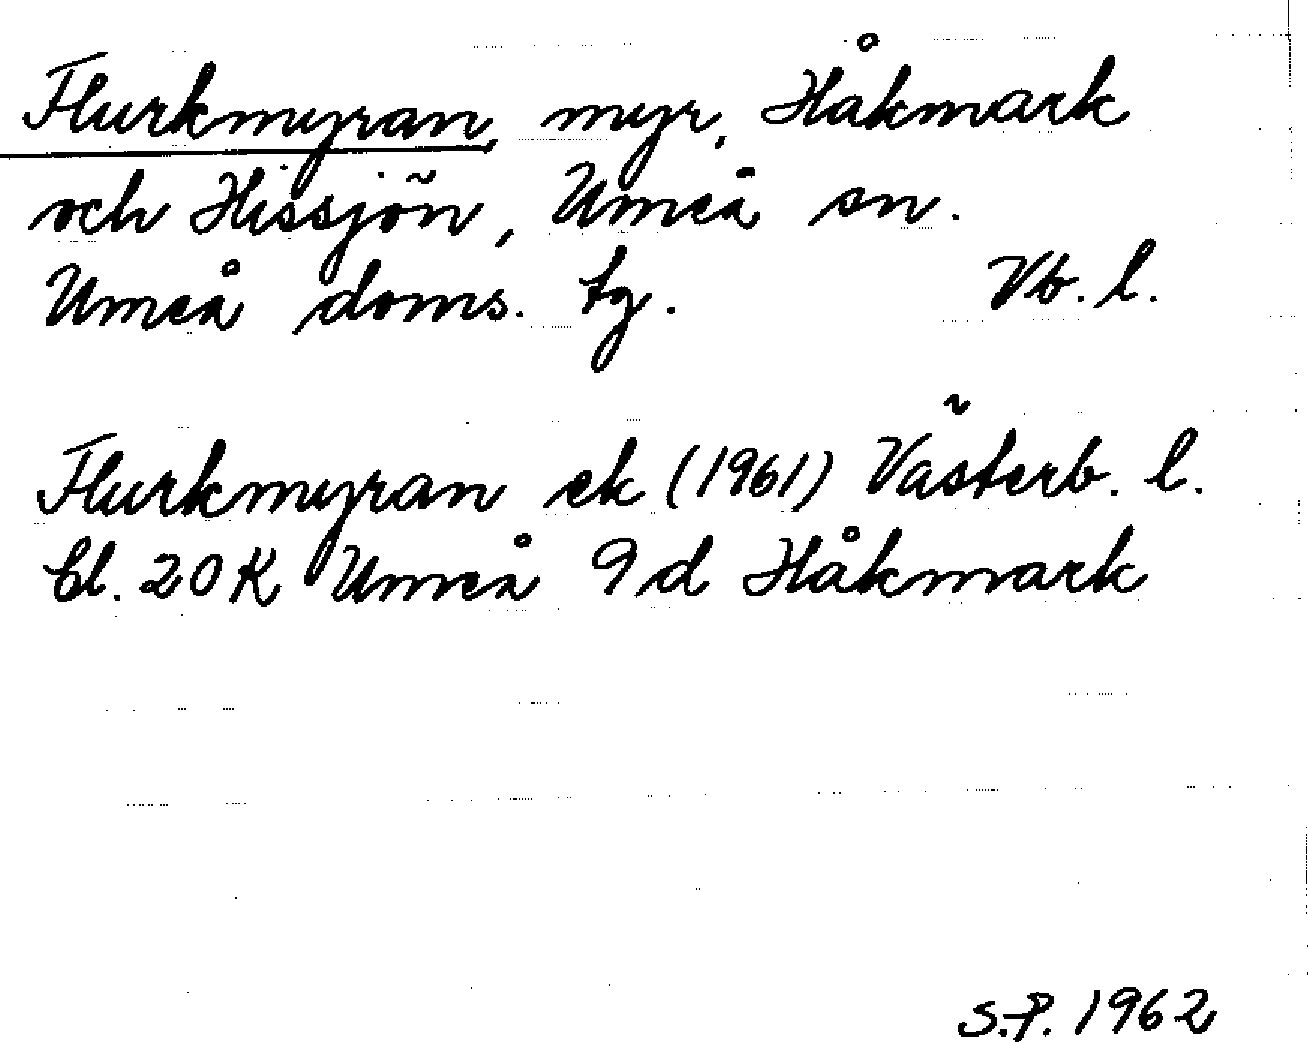 Flurkmyran, myr, Håkmark
och Hissjön, Umeå sn.
Umeå doms. tg. Vb. l.
Flurkmyran ek (1961) Västerb. l.
bl. 20 K Umeå 9 d Håkmark
S.P. 1962